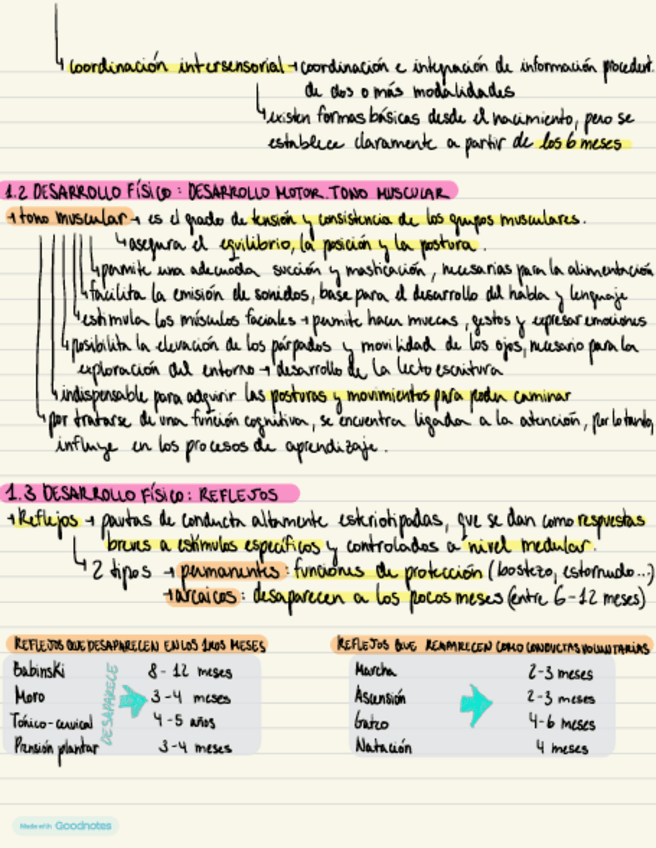 coordinación intersensorial → coordinación e integración de información procedent.
de dos o más modalidades
existen formas básicas desde el nacimiento, pero se
establece claramente a partir de los 6 meses
1.2 DESARROLLO FÍSICO: DESARROLLO MOTOR. TONO MUSCULAR
→ tono muscular → es el grado de tensión y consistencia de los grupos musculares.
asegura el equilibrio, la posición y la postura.
permite una adecuada succión y masticación, necesarias para la alimentación
facilita la emisión de sonidos, base para el desarrollo del habla y lenguaje
estimula los músculos faciales → permite hacer muecas, gestos y expresar emociones
posibilita la elevación de los párpados y movilidad de los ojos, necesario para la
exploración del entorno → desarrollo de la lecto escritura
indispensable para adquirir las posturas y movimientos para poder caminar
por tratarse de una función cognitiva, se encuentra ligada a la atención, por lo tanto,
influye en los procesos de aprendizaje.
1.3 DESARROLLO FÍSICO: REFLEJOS
→ Reflejos → pautas de conducta altamente esteriotipadas, que se dan como respuestas
breves a estímulos específicos y controlados a nivel medular.
2 tipos → permanentes: funciones de protección (bostezo, estornudo...)
→ arcaicos: desaparecen a los pocos meses (entre 6-12 meses)
REFLEJOS QUE DESAPARECEN EN LOS 1ROS MESES
Babinski 8-12 meses
Moro 3-4 meses
Tónico-cervical 4-5 años
Prensión plantar 3-4 meses
DESAPARECE
REFLEJOS QUE REAPARECEN COMO CONDUCTAS VOLUNTARIAS
Marcha 2-3 meses
Ascensión 2-3 meses
Gateo 4-6 meses
Natación 4 meses
Made with Goodnotes